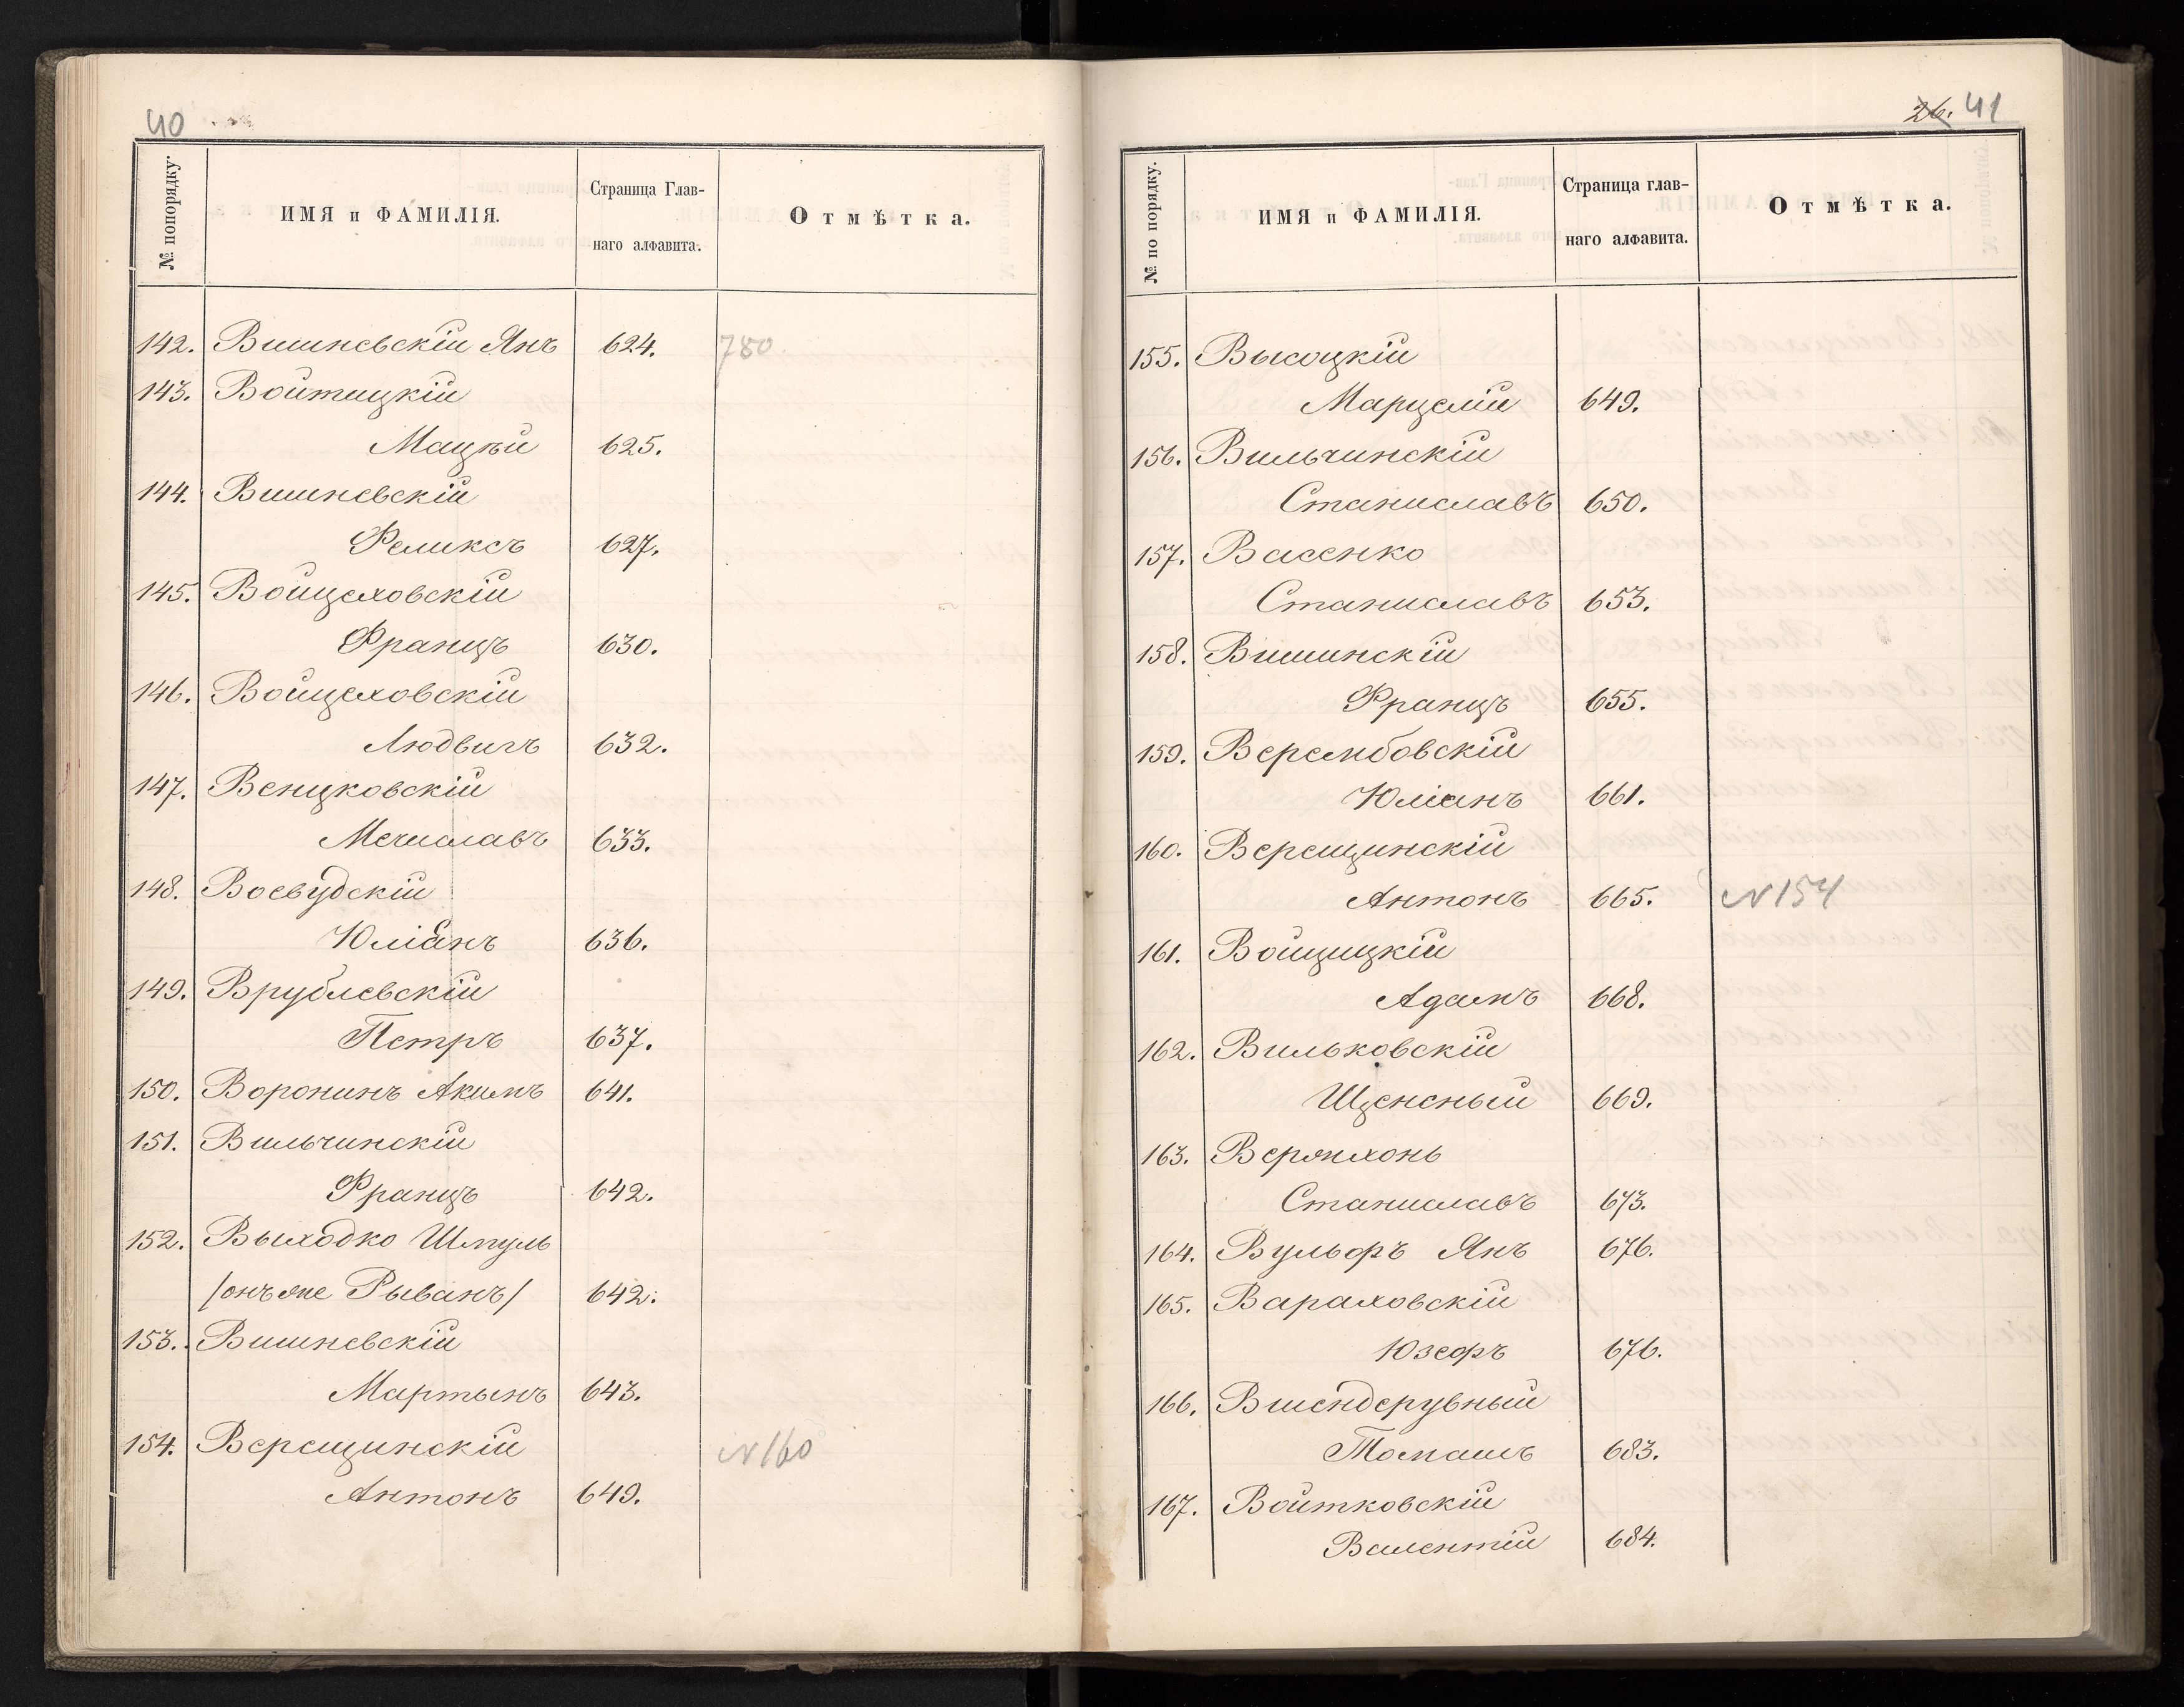 40
№ попорядку.
ИМЯ и ФАМИЛІЯ.
Страница Глав-
наго алфавита.
Отмѣтка.
142. Вишневскій Янъ 624. 780.
143. Войтицкій
Мацѣй 625.
144. Вишневскій
Феликсъ 627.
145. Войцеховскій
Францъ 630.
146. Войцеховскій
Людвигъ 632.
147. Венцковскій
Мечиславъ 633.
148. Воевудскій
Юліанъ 636.
149. Врублевскій
Петръ 637.
150. Воронинъ Акимъ 641.
151. Вильчинскій
Францъ 642.
152. Выходко Шмуль
/онъ же Рыванъ/ 642.
153. Вишневскій
Мартынъ 643.
154. Верещинскій N160
Антонъ 649.
26. 41
№ по порядку.
ИМЯ и ФАМИЛІЯ.
Страница глав-
наго алфавита.
Отмѣтка.
155. Высоцкій
Марцелій 649.
156. Вильчинскій
Станиславъ 650.
157. Васенко
Станиславъ 653.
158. Вишинскій
Францъ 655.
159.Верембовскій
Юліанъ 661.
160. Верещинскій
Антонъ 665. N154
161. Войцицкій
Адамъ 668.
162. Вильковскій
Щенсный 669.
163. Вержхонь
Станиславъ 673.
164. Вульфъ Янъ 676.
165. Вараховскій
Юзефъ 676.
166. Вшендерувный
Томашъ 683.
167. Войтковскій
Валентій 684.